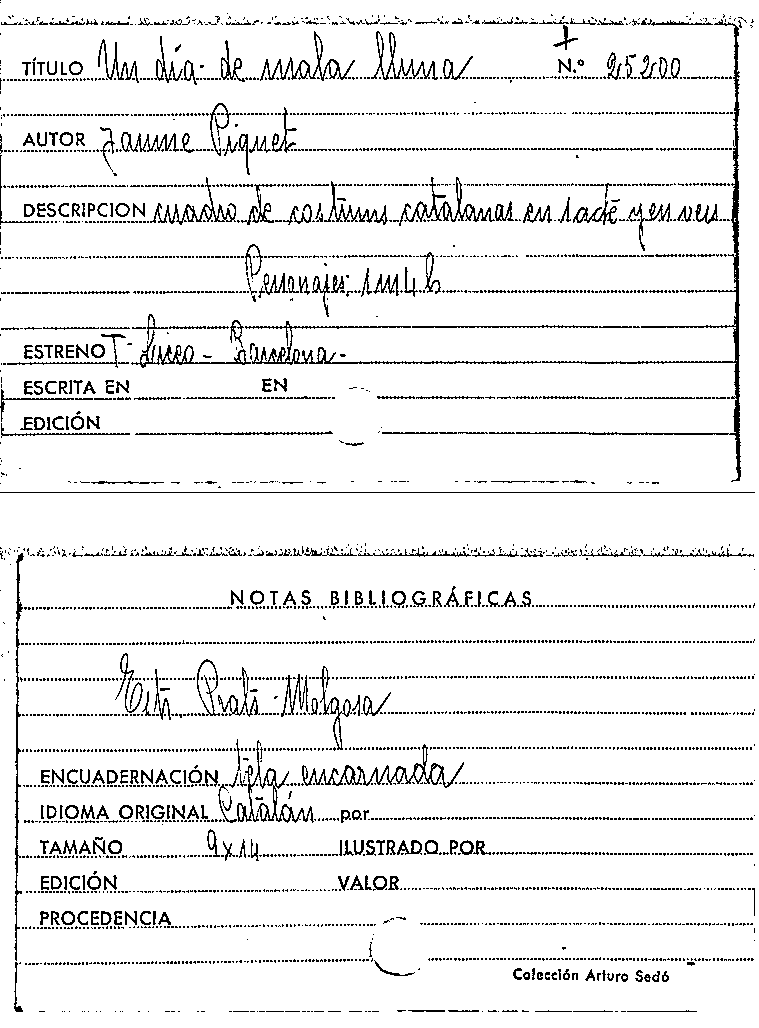 TÍTULO Un día de mala lluna N.º 25200
AUTOR Jaume Piquet
DESCRIPCION cuadro de costums catalanas en 1 acte y en vers
Personajes: 1m4h
ESTRENO T- Liceo - Barcelona -
ESCRITA EN EN
EDICIÓN
NOTAS BIBLIOGRÁFICAS
Prats - Molgosa
ENCUADERNACIÓN tela encarnada
IDIOMA ORIGINAL Catalán por
TAMAÑO 9x14 ILUSTRADO POR
EDICIÓN VALOR
PROCEDENCIA
Colección Arturo Sedó